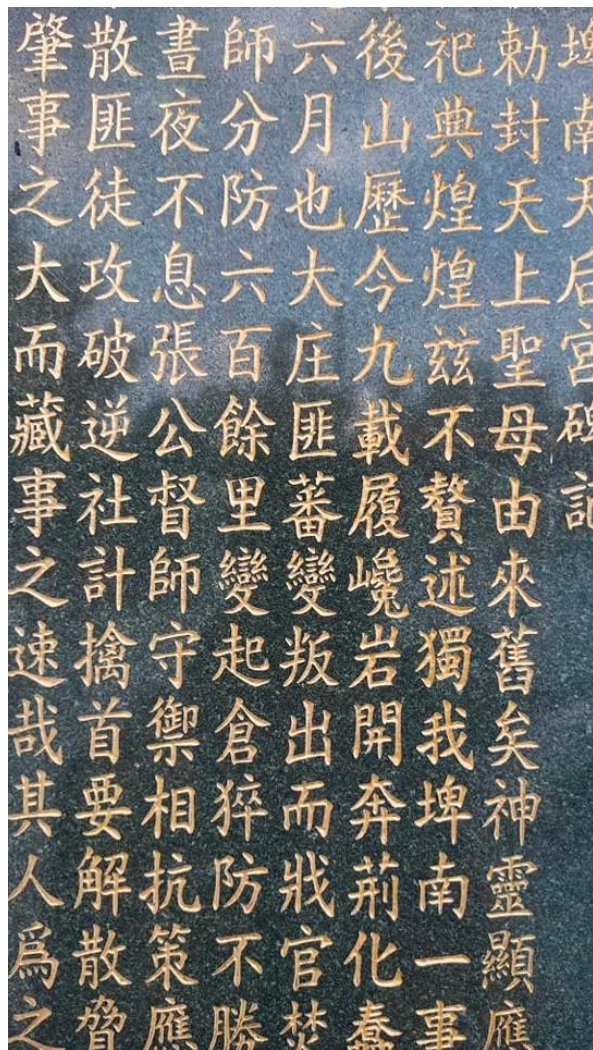 埤南天后宮碑記
勅封天上聖母由來舊矣神靈顯應
祀典煌煌玆不贅述獨我埤南一事
後山歷今九載履巉岩開奔荊化蠢
六月也大庄匪蕃變叛出而戕官焚
師分防六百餘里變起倉猝防不勝
晝夜不息張公督師守禦相抗策應
散匪徒攻破逆社計擒首要解散脅
肇事之大而藏事之速哉其人爲之